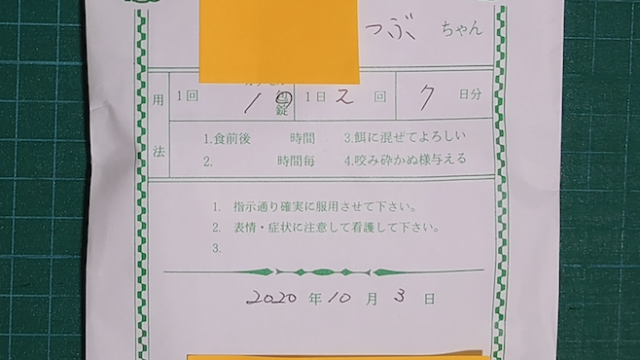 つぶ ちゃん
用法 1回 1 包 錠 1日 2 回 7 日分
1.食前後 時間 3.餌に混ぜてよろしい
2. 時間毎 4.咬み砕かぬ様与える
1. 指示通り確実に服用させて下さい。
2. 表情・症状に注意して看護して下さい。
3.
2020 年 10 月 3 日